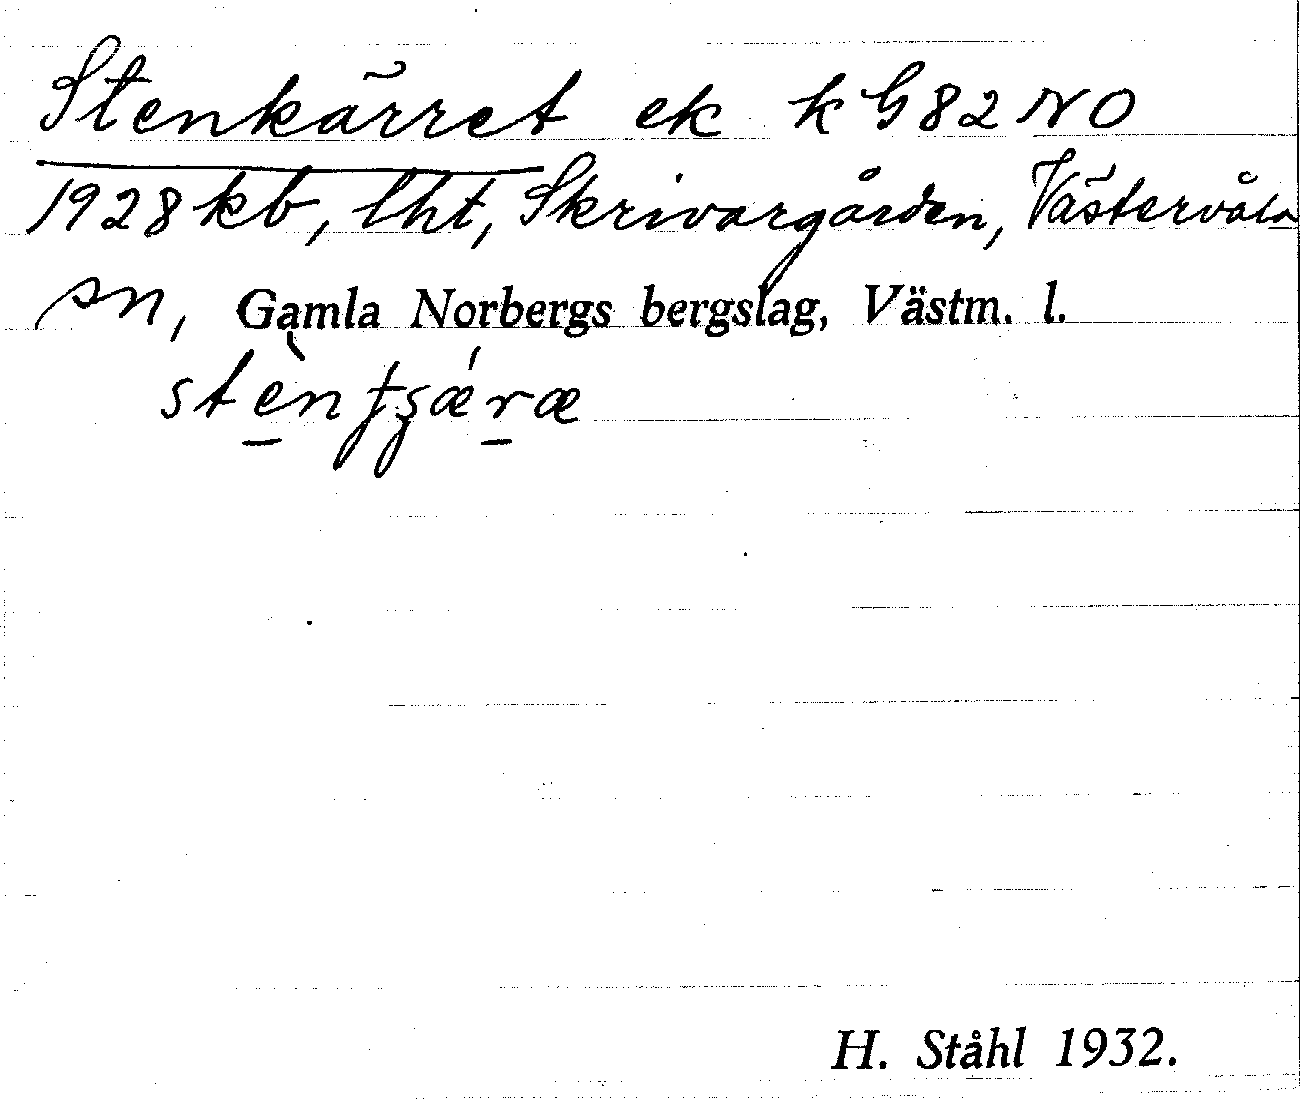 Stenkärret ek k G82 NO
1928 kb, lht, Skrivargården, Västervåla
sn, Gamla Norbergs bergslag, Västm. l.
H. Ståhl 1932.